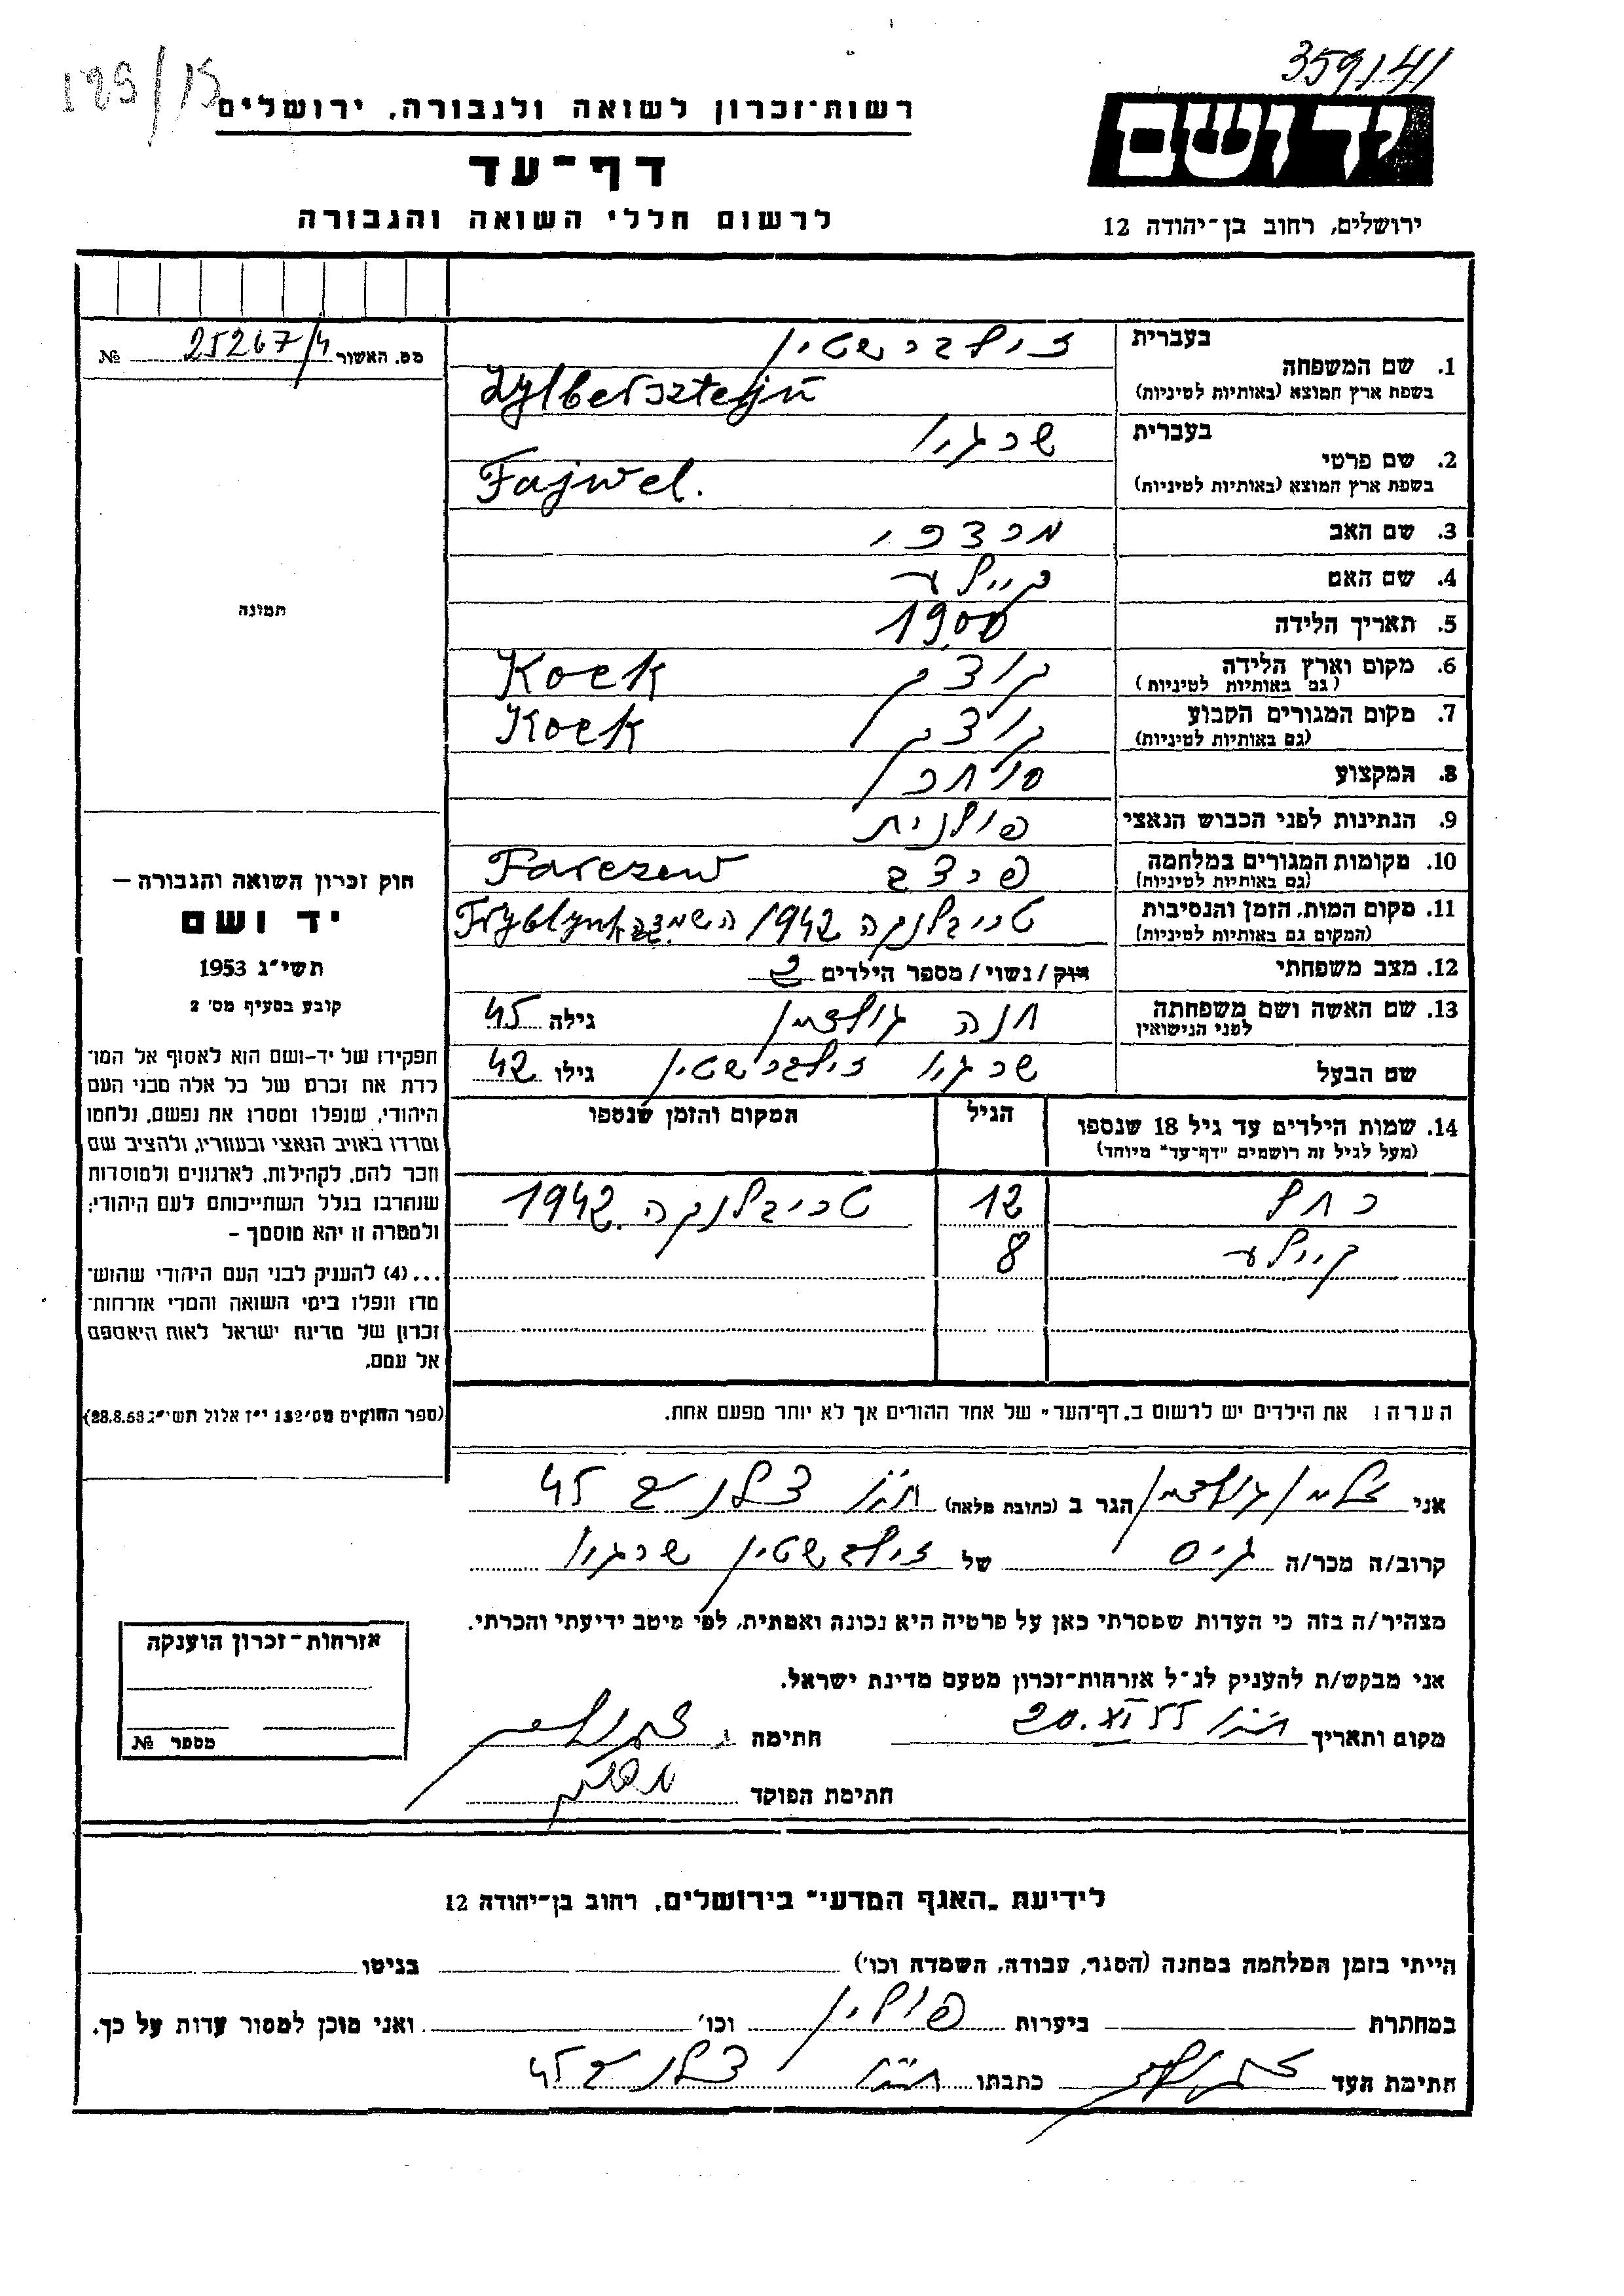 359141
129/15
ידושם
רשות־זכרון לשואה ולגבורה, ירושלים
דף־עד
ירושלים, רחוב בן־יהודה 12
לרשום חללי השואה והגבורה
מס. האשור 25267/4 №
תמונה
1. שם המשפחה
בעברית זילברשטיין
בשפת ארץ המוצא (באותיות לטיניות) Zylbersztejn
2. שם פרטי
בעברית שרגיו
בשפת ארץ המוצא (באותיות לטיניות) Fajwel.
3. שם האב מרדכי
4. שם האם קיילע
5. תאריך הלידה 1900
6. מקום וארץ הלידה קוצק Kock
(גם באותיות לטיניות)
7. מקום המגורים הקבוע קוצק Kock
(גם באותיות לטיניות)
8. המקצוע סוחר
9. הנתינות לפני הכבוש הנאצי פולנית
10. מקומות המגורים במלחמה Parczew
(גם באותיות לטיניות)
11. מקום המות, הזמן והנסיבות טריבלנקה 1942
(המקום גם באותיות לטיניות)
12. מצב משפחתי רווק / נשוי / מספר הילדים 2
13. שם האשה ושם משפחתה חנה גולדמן גילה 45
לפני הנישואין
שם הבעל שרגיו זילברשטיין גילו 42
14. שמות הילדים עד גיל 18 שנספו הגיל המקום והזמן שנספו
(מעל לגיל זה רושמים "דף־עד" מיוחד)
רחל 12 טריבלנקה 1942
קיילע 8
הערה: את הילדים יש לרשום ב„דף־העד" של אחד ההורים אך לא יותר מפעם אחת.
חוק זכרון השואה והגבורה –
יד ושם
תשי"ג 1953
קובע בסעיף מס' 2
תפקידו של יד־ושם הוא לאסוף אל המו־
לדת את זכרם של כל אלה מבני העם
היהודי, שנפלו ומסרו את נפשם, נלחמו
ומרדו באויב הנאצי ובעוזריו, ולהציב שם
וזכר להם, לקהילות, לארגונים ולמוסדות
שנחרבו בגלל השתייכותם לעם היהודי;
ולמטרה זו יהא מוסמך –
...(4) להעניק לבני העם היהודי שהוש־
מדו ונפלו בימי השואה והמרי אזרחות־
זכרון של מדינת ישראל לאות היאספם
אל עמם.
(ספר החוקים מס' 132 י"ז אלול תשי"ג 28.8.53)
אני זלמן גולדמן הגר ב (כתובת מלאה) 45
קרוב/ה מכר/ה גיס של זילברשטיין שרגיו
מצהיר/ה בזה כי העדות שמסרתי כאן על פרטיה היא נכונה ואמתית, לפי מיטב ידיעתי והכרתי.
אני מבקש/ת להעניק לנ"ל אזרחות־זכרון מטעם מדינת ישראל.
מקום ותאריך 20.XI 55 חתימה
חתימת הפוקד
אזרחות־זכרון הוענקה
מספר №
לידיעת „האגף המדעי" בירושלים, רחוב בן־יהודה 12
הייתי בזמן המלחמה במחנה (הסגר, עבודה, השמדה וכו') בגיטו
במחתרת ביערות פולין וכו' ואני מוכן למסור עדות על כך.
חתימת העד כתבתו 45